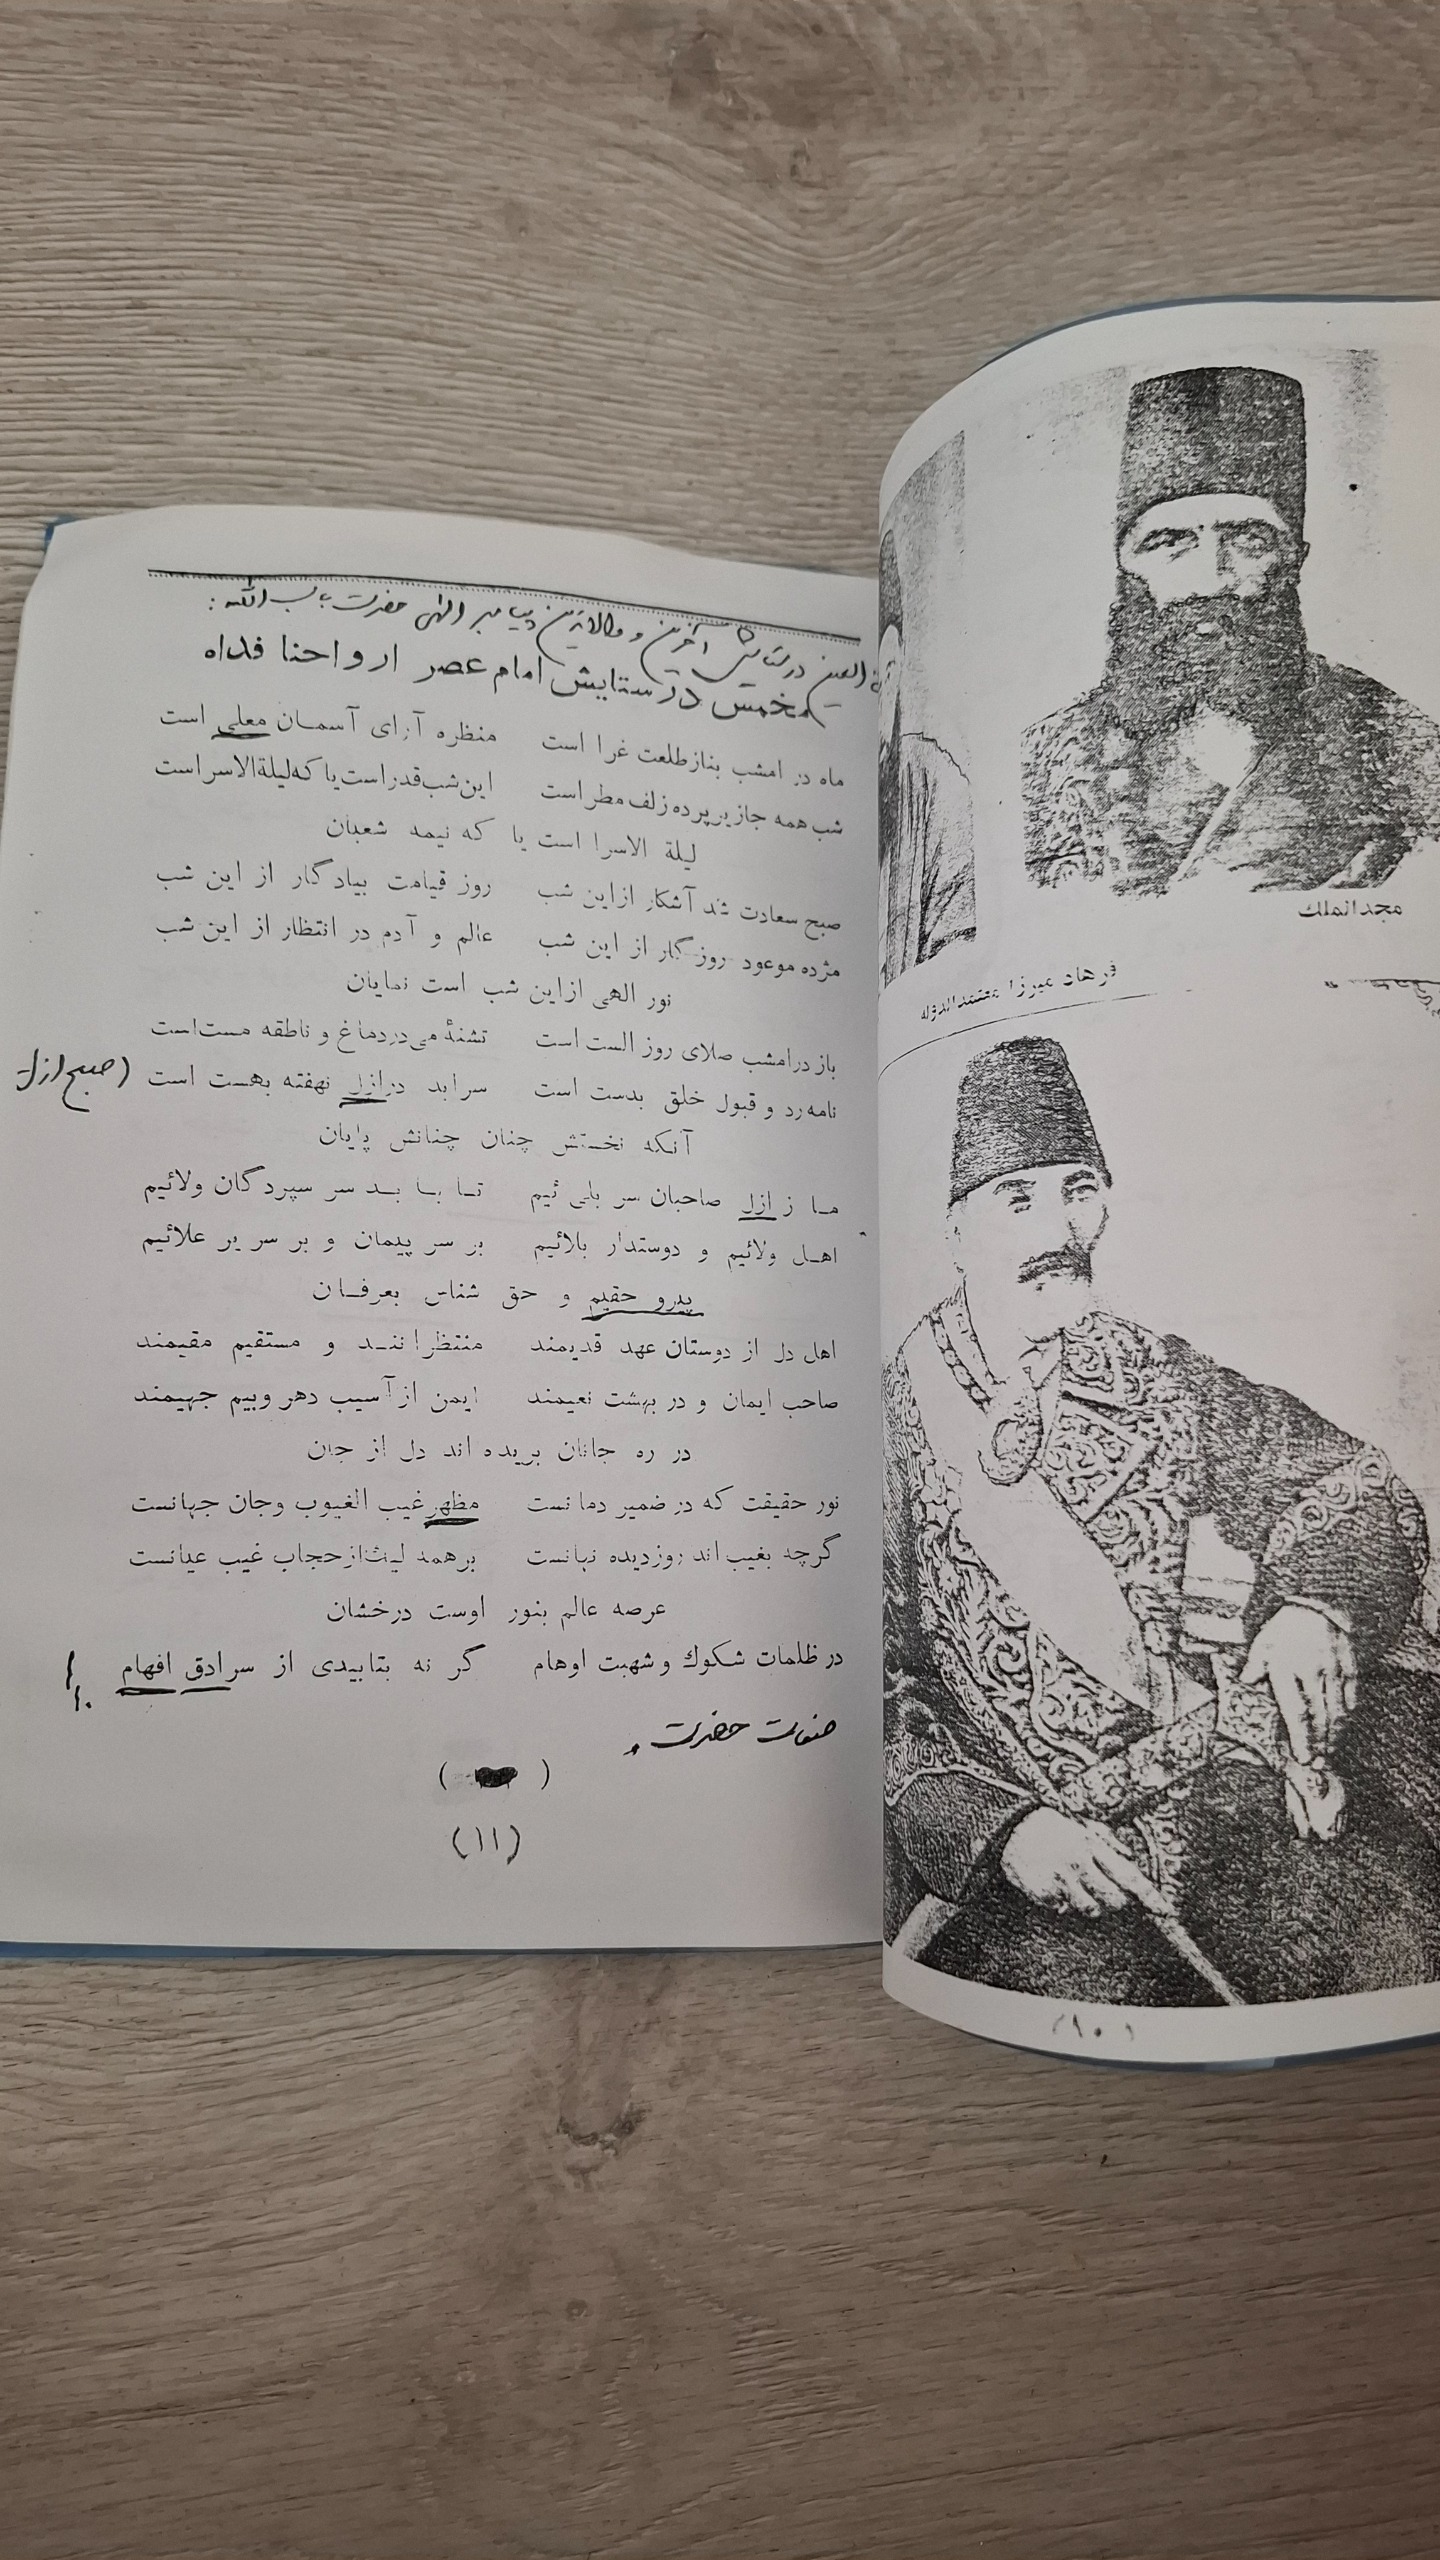 العین در ستایش آخرین و والاترین پیامبر الهی حضرت باب الله :
مخمس در ستایش امام عصر ارواحنا فداه
ماه در امشب بناز طلعت غرا است منظره آرای آسمان معلی است
شب همه جا زیر پرده زلف مطر است این شب قدر است یا که لیلة الاسر است
لیلة الاسرا است یا که نیمه شعبان
صبح سعادت شد آشکار از این شب روز قیامت بیادگار از این شب
مژده موعود روزگار از این شب عالم و آدم در انتظار از این شب
نور الهی از این شب است نمایان
باز در امشب صلای روز الست است تشنهٔ می در دماغ و ناطقه مست است
نامه رد و قبول خلق بدست است سر ابد در ازل نهفته بهست است (صبح ازل
آنکه نخستش چنان چنانش پایان
ما ز ازل صاحبان سر بلی ئیم تا با بد سر سپردگان ولائیم
اهل ولائیم و دوستدار بلائیم بر سر پیمان و بر سریر علائیم
پیرو حقیم و حق شناس بعرفان
اهل دل از دوستان عهد قدیمند منتظرانند و مستقیم مقیمند
صاحب ایمان و در بهشت نعیمند ایمن از آسیب دهر و بیم جهیمند
در ره جانان بریده اند دل از جان
نور حقیقت که در ضمیر دمانست مظهر غیب الغیوب و جان جهانست
گرچه بغیب اند روز دیده نهانست بر همه لیک از حجاب غیب عیانست
عرصه عالم بنور اوست درخشان
در ظلمات شکوك و شهبت اوهام گر نه بتابیدی از سرادق افهام
حضرت
(۱۱)
مجدالملك
فرهاد میرزا معتمدالدوله
(۹۰)